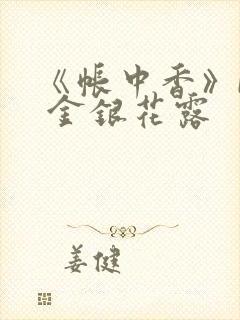 《帐中香》
金银花露
姜健